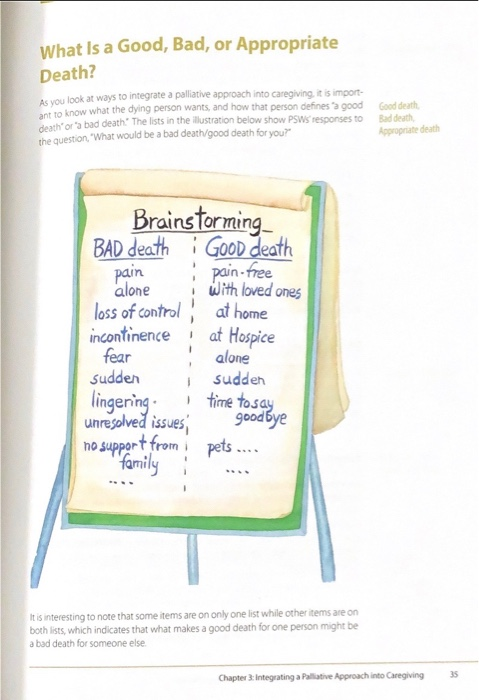 What Is a Good, Bad, or Appropriate
Death?
As you look at ways to integrate a palliative approach into caregiving, it is import-
ant to know what the dying person wants, and how that person defines "a good
death" or "a bad death." The lists in the illustration below show PSWs' responses to
the question, "What would be a bad death/good death for you?"
Good death,
Bad death,
Appropriate death
Brainstorming
BAD death
pain
alone
loss of control
incontinence
fear
sudden
lingering.
unresolved issues
no support from
family
....
GOOD death
pain-free
With loved ones
at home
at Hospice
alone
sudden
time to say
goodbye
pets ....
....
It is interesting to note that some items are on only one list while other items are on
both lists, which indicates that what makes a good death for one person might be
a bad death for someone else.
Chapter 3: Integrating a Palliative Approach into Caregiving 35